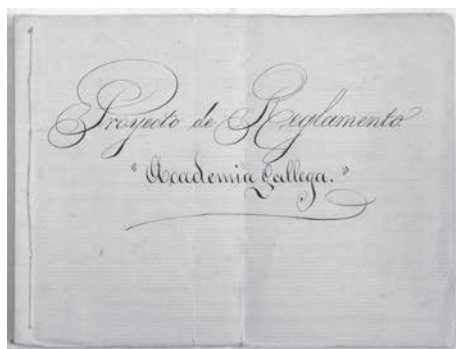 Proyecto de Reglamento.
"Academia Gallega."